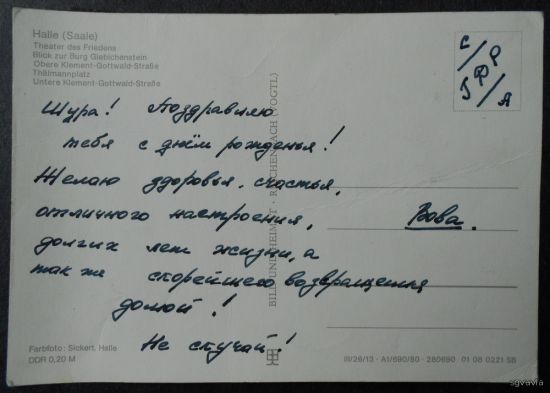 Halle (Saale)
Theater des Friedens
Blick zur Burg Giebichenstein
Obere Klement-Gottwald-Straße
Thälmannplatz
Untere Klement-Gottwald-Straße
с/ГДР/А
Шура! Поздравляю
тебя с днём рожденья!
Желаю здоровья, счастья,
отличного настроения,
долгих лет жизни, а
так же скорейшего возвращения
домой!
Не скучай!
Вова.
BILD UND HEIMAT · REICHENBACH (VOGTL)
Farbfoto: Sickert, Halle
DDR 0,20 M
III/26/13 · A1/690/80 · 280690 01 08 0221 SB
sgvavia